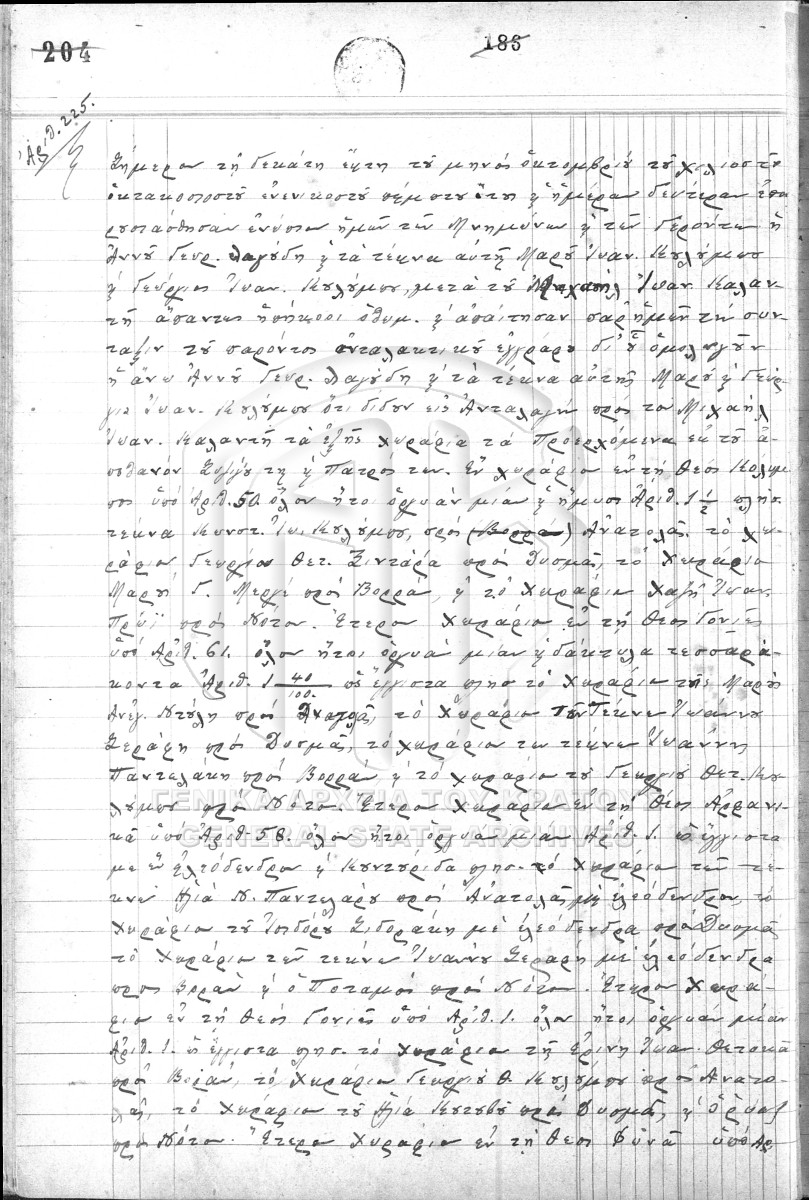 204
183
Ἀριθ. 225.
Σήμερον τῇ δεκάτῃ ἕκτῃ τοῦ μηνὸς ὀκτομβρίου τοῦ χιλιοστοῦ
ὀκτακοσιοστοῦ ἐνενικοστοῦ πέμπτου ἔτη ἡμέραν δευτέραν ἐπα
ρουσιάσθησαν ἐνώπιον ἡμῶν τῶν Μνημόνων καὶ τῶν Γερόντων ἡ
Ἀννοῦ Γεωρ. Λαγούδη καὶ τὰ τέκνα αὐτῆς Μαροῦ Ἰωαν. Κουλούμπου
καὶ Γεώργιος Ἰωαν. Κουλούμπου, μετὰ τοῦ Μιχαὴλ Ἰωαν. Καλαν-
τῆ ἅπαντες ὑπήκοοι ὀθωμ. καὶ ἀπαίτησαν παρ' ἡμῶν τὴν σύν-
ταξιν τοῦ παρόντος ἀνταλακτικοῦ ἐγγράφου δι' οὗ ὁμολογοῦν
ἡ ἄνω Ἀννοῦ Γεωρ. Λαγούδη καὶ τὰ τέκνα αὐτῆς Μαροῦ καὶ Γεώρ-
γιος Ἰωαν. Κουλούμπου ὅτι δίδουν εἰς Ἀνταλαγὴν πρὸς τὸν Μιχαὴλ
Ἰωαν. Καλαντῆ τὰ ἑξῆς χωράφια τὰ Προερχόμενα ἐκ τοῦ ἀ-
ποθανόν Συζύγου της καὶ Πατρός των. Ἓν χωράφιον ἐν τῇ θέσ. Κόλυμ
πος ὑπὸ Ἀριθ. 50 ὅλον ἤτοι ὀργυὰν μίαν καὶ ἥμυσι Ἀριθ. 1 1/2 πλησ.
τέκνα Κωνστ. Ἰω. Κουλούμπου, πρὸς (Βορρᾶν) Ἀνατολάς. τὸ χω-
ράφιον Γεωργίου Θετ. Ξιντάρα πρὸς Δυσμάς, τὸ Χωράφιο
Μαροῦς Γ. πρὸς Βορρᾶ, καὶ τὸ χωράφιον Χατζῆ Ἰωαν.
Πρωΐ πρὸς Νότον. Ἕτερον Χωράφιον ἐν τῇ θέσ. Γονιές
ὑπὸ Ἀριθ. 61. ὅλον ἤτοι ὀργυὰ μίαν καὶ δάκτυλα τεσσαρά-
κοντα Ἀριθ. 1 40/100 ὡς ἔγγιστα πλησ. τὸ Χωράφιον τῆς Μαροῦς
Ἀντ. πρὸς Ἀνατολάς, τὸ Χωράφιον τῶν Τέκνων Ἰωάννου
Σεράφη πρὸς Δυσμάς, τὸ χωράφιον των τέκνων Ἰωάννη
Παντελάκη πρὸς Βορράν, καὶ τὸ χωράφιον τοῦ Γεωργίου Θετ. Κου-
λούμπου προς Νότον. Ἕτερον Χωράφιον ἐν τῇ θέσ. Ἀρφανι-
κὰ ὑπὸ Ἀριθ. 58. ὅλον ἤτοι ὀργυὰν μίαν Ἀριθ. 1. ὡς ἔγγιστα
με ἓν ἐλεόδενδρον καὶ Κουντουρίδα πλησ. τὸ Χωράφιον τῶν τέ-
κνων Ἠλία Ν. Παντελάρου πρὸς Ἀνατολὰς μὲ ἐλεόδενδρον, τὸ
Χωράφιον τοῦ Ἰσιδόρου Σιδοράκη μὲ ἐλεόδενδρα πρὸς Δυσμάς
τὸ Χωράφιον τῶν τέκνων Ἰωάννου Σεράφη με ἐλεόδενδρα
πρὸς Βορρᾶν καὶ ὁ Ποταμὸς πρὸς Νότον. Ἕτερον Χωρά-
φιον ἐν τῇ θέσ. Γονιές ὑπὸ Ἀριθ. 1. ὅλον ἤτοι ὀργυὰν μίαν
Ἀριθ. 1. ὡς ἔγγιστα πλησ. τὸ χωράφιον τῆς Εἰρίνη Ἰωαν.
πρὸς Βορᾶν, τὸ Χωράφιον Γεωργίου Θ. Κουλούμπου πρὸς Ἀνατο-
λάς, τὸ Χωράφιον τοῦ Ἠλία πρὸς Δυσμάς, καὶ
πρὸς Νότον. Ἕτερον Χωράφιον ἐν τῇ θέσ. ὑπὸ Ἀρ.
ΓΕΝΙΚΑ ΑΡΧΕΙΑ ΤΟΥ ΚΡΑΤΟΥΣ
GENERAL STATE ARCHIVES